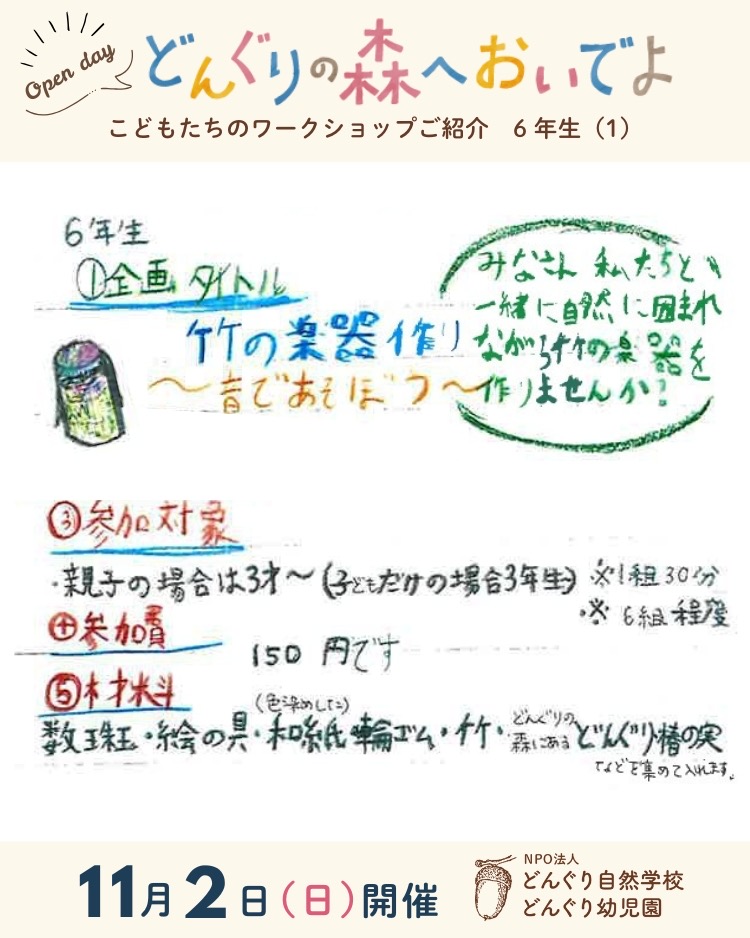 Open day
どんぐりの森へおいでよ
こどもたちのワークショップご紹介 6年生（1）
6年生
①企画タイトル
竹の楽器作り
～音であそぼう～
みなさん 私たちと
一緒に自然に囲まれ
ながら竹の楽器を
作りませんか？
③参加対象
・親子の場合は3才～(子どもだけの場合3年生) ※1組30分
※6組程度
④参加費
150円です
⑤材料
(色染めした)
数珠玉・絵の具・和紙・輪ゴム・竹・どんぐりの森にあるどんぐり・椿の実
などを集めて入れます。
11月2日（日）開催
NPO法人
どんぐり自然学校
どんぐり幼児園